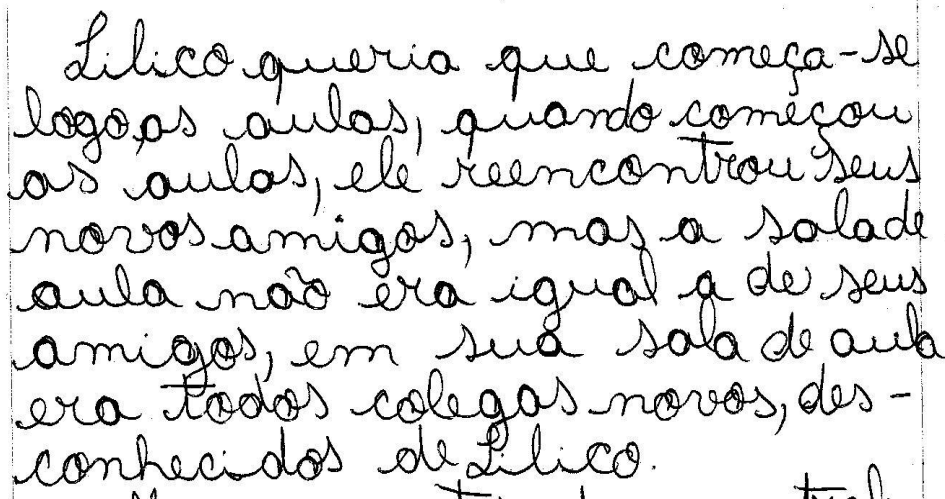 Lilico queria que começa-se
logo as aulas, quando começou
as aulas, ele reencontrou seus
novos amigos, mas a sala de
aula não era igual a de seus
amigos, em sua sala de aula
era todos colegas novos, des-
conhecidos de Lilico.